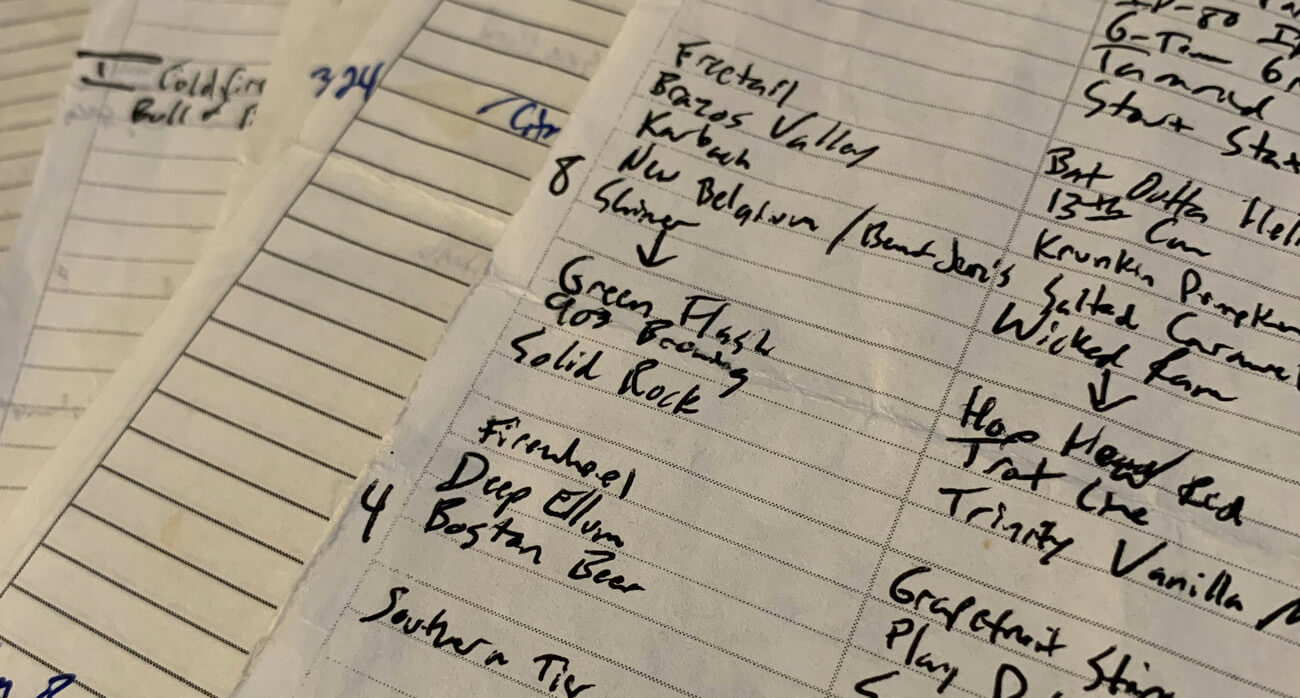 Coldfire
Bull &
324
Freetail
Brazos Valley
Karbach
8 New Belgium / Ben & Jerry's
Shiner
↓
Green Flash
903 Brewing
Solid Rock
Firewheel
Deep Ellum
4 Boston Beer
Southern Tier
6-Ton
Start Stat
Bat Outta Hell
13th Can
Krunkin Pumpkin
Salted Caramel
Wicked Ram
↓
Hop Head Red
Trot Line
Trinity Vanilla
Grapefruit Sting
Play D